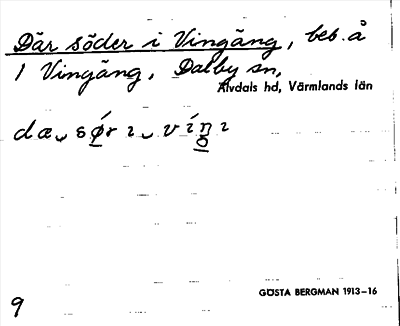 Där söder i Vingäng, beb. å
1 Vingäng, Dalby sn,
Älvdals hd, Värmlands län
GÖSTA BERGMAN 1913–16
9